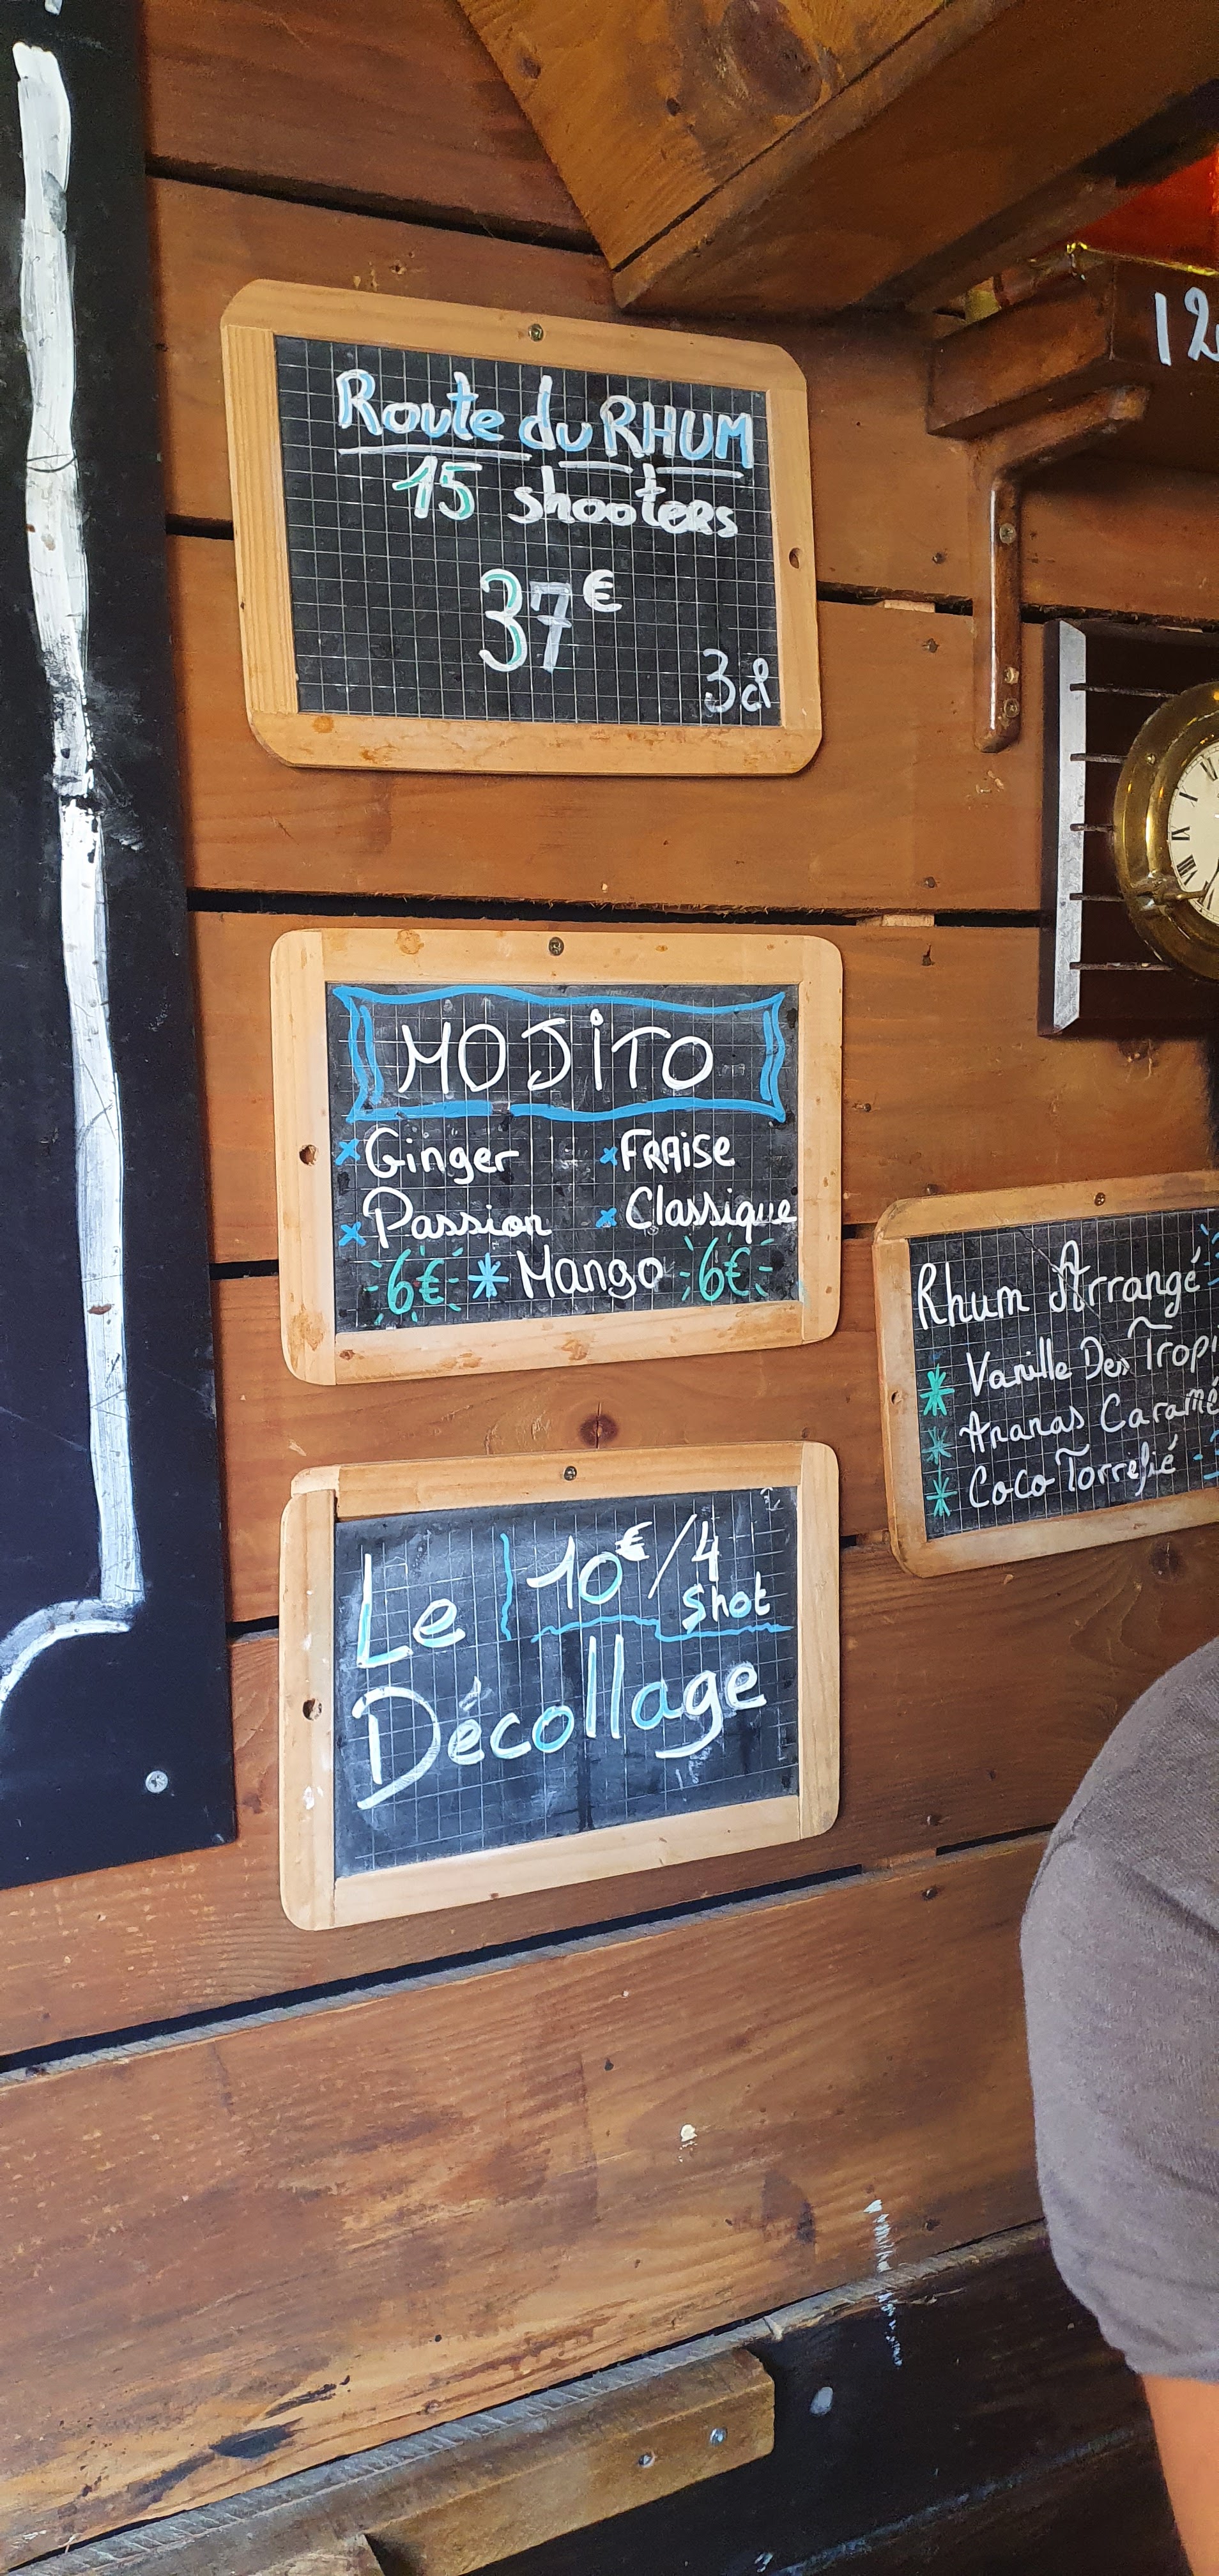 Route du RHUM
15 shooters
37€
3cl
MOJiTO
x Ginger x FRAise
x Passion x Classique
6€ * Mango 6€
Rhum Arrangé
* Vanille Des
* Ananas
* Coco Torréfié
Le 10€/4 shot
Décollage